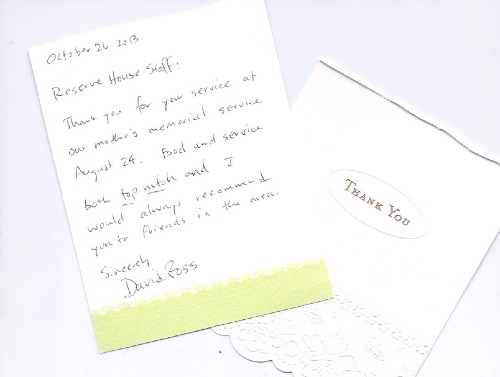 October 26 2013
Reserve House Staff:
Thank you for your service at
our mother's memorial service
August 24. Food and service
both top notch and I
would always recommend
you to friends in the area.
Sincerely
David Ross
THANK YOU